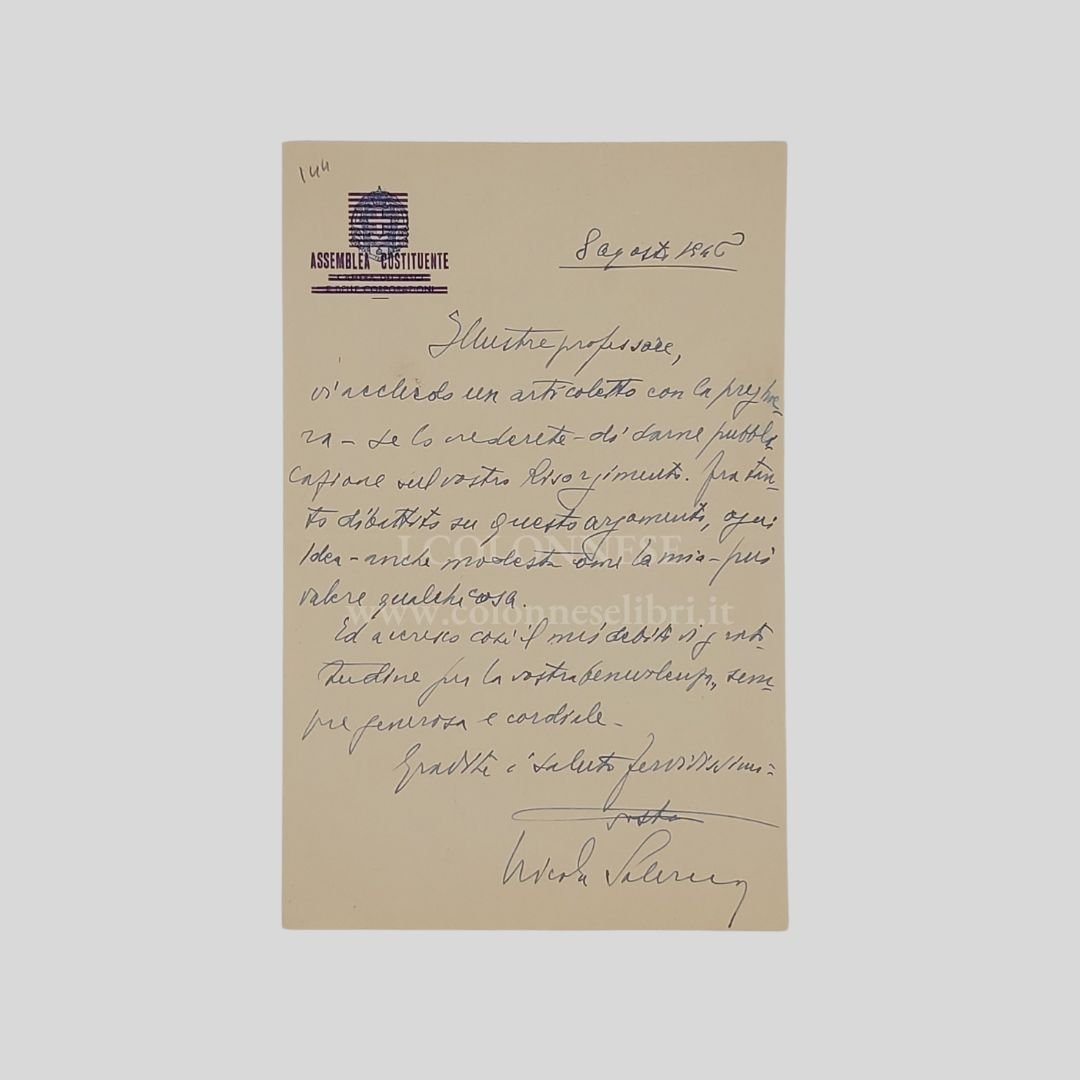 144
ASSEMBLEA COSTITUENTE
CAMERA DEI FASCI
E DELLE CORPORAZIONI
8 agosto 1946
Illustre professore,
vi accludo un articoletto con la preghie-
ra - se lo crederete - di darne pubbli-
cazione sul vostro Risorgimento. Fra tan-
to dibattito su questo argomento, ogni
idea - anche modesta come la mia - può
valere qualche cosa.
Ed accresco così il mio debito di grati-
tudine per la vostra benevolenza, sem-
pre generosa e cordiale -
Gradite i saluti fervidissimi -
vostro
Nicola Salerno
I COLONNESE
www.colonneselibri.it